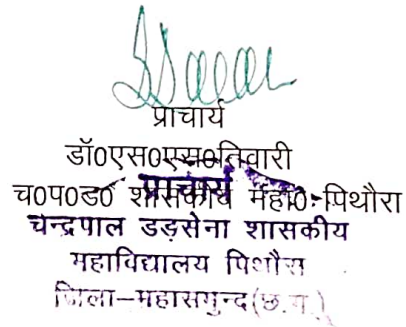 प्राचार्य
डॉ0एस0एस0तिवारी
च0प0ड0 शासकीय महा0-पिथौरा
प्राचार्य
चन्द्रपाल डड़सेना शासकीय
महाविद्यालय पिथौरा
जिला-महासमुन्द(छ.ग.)